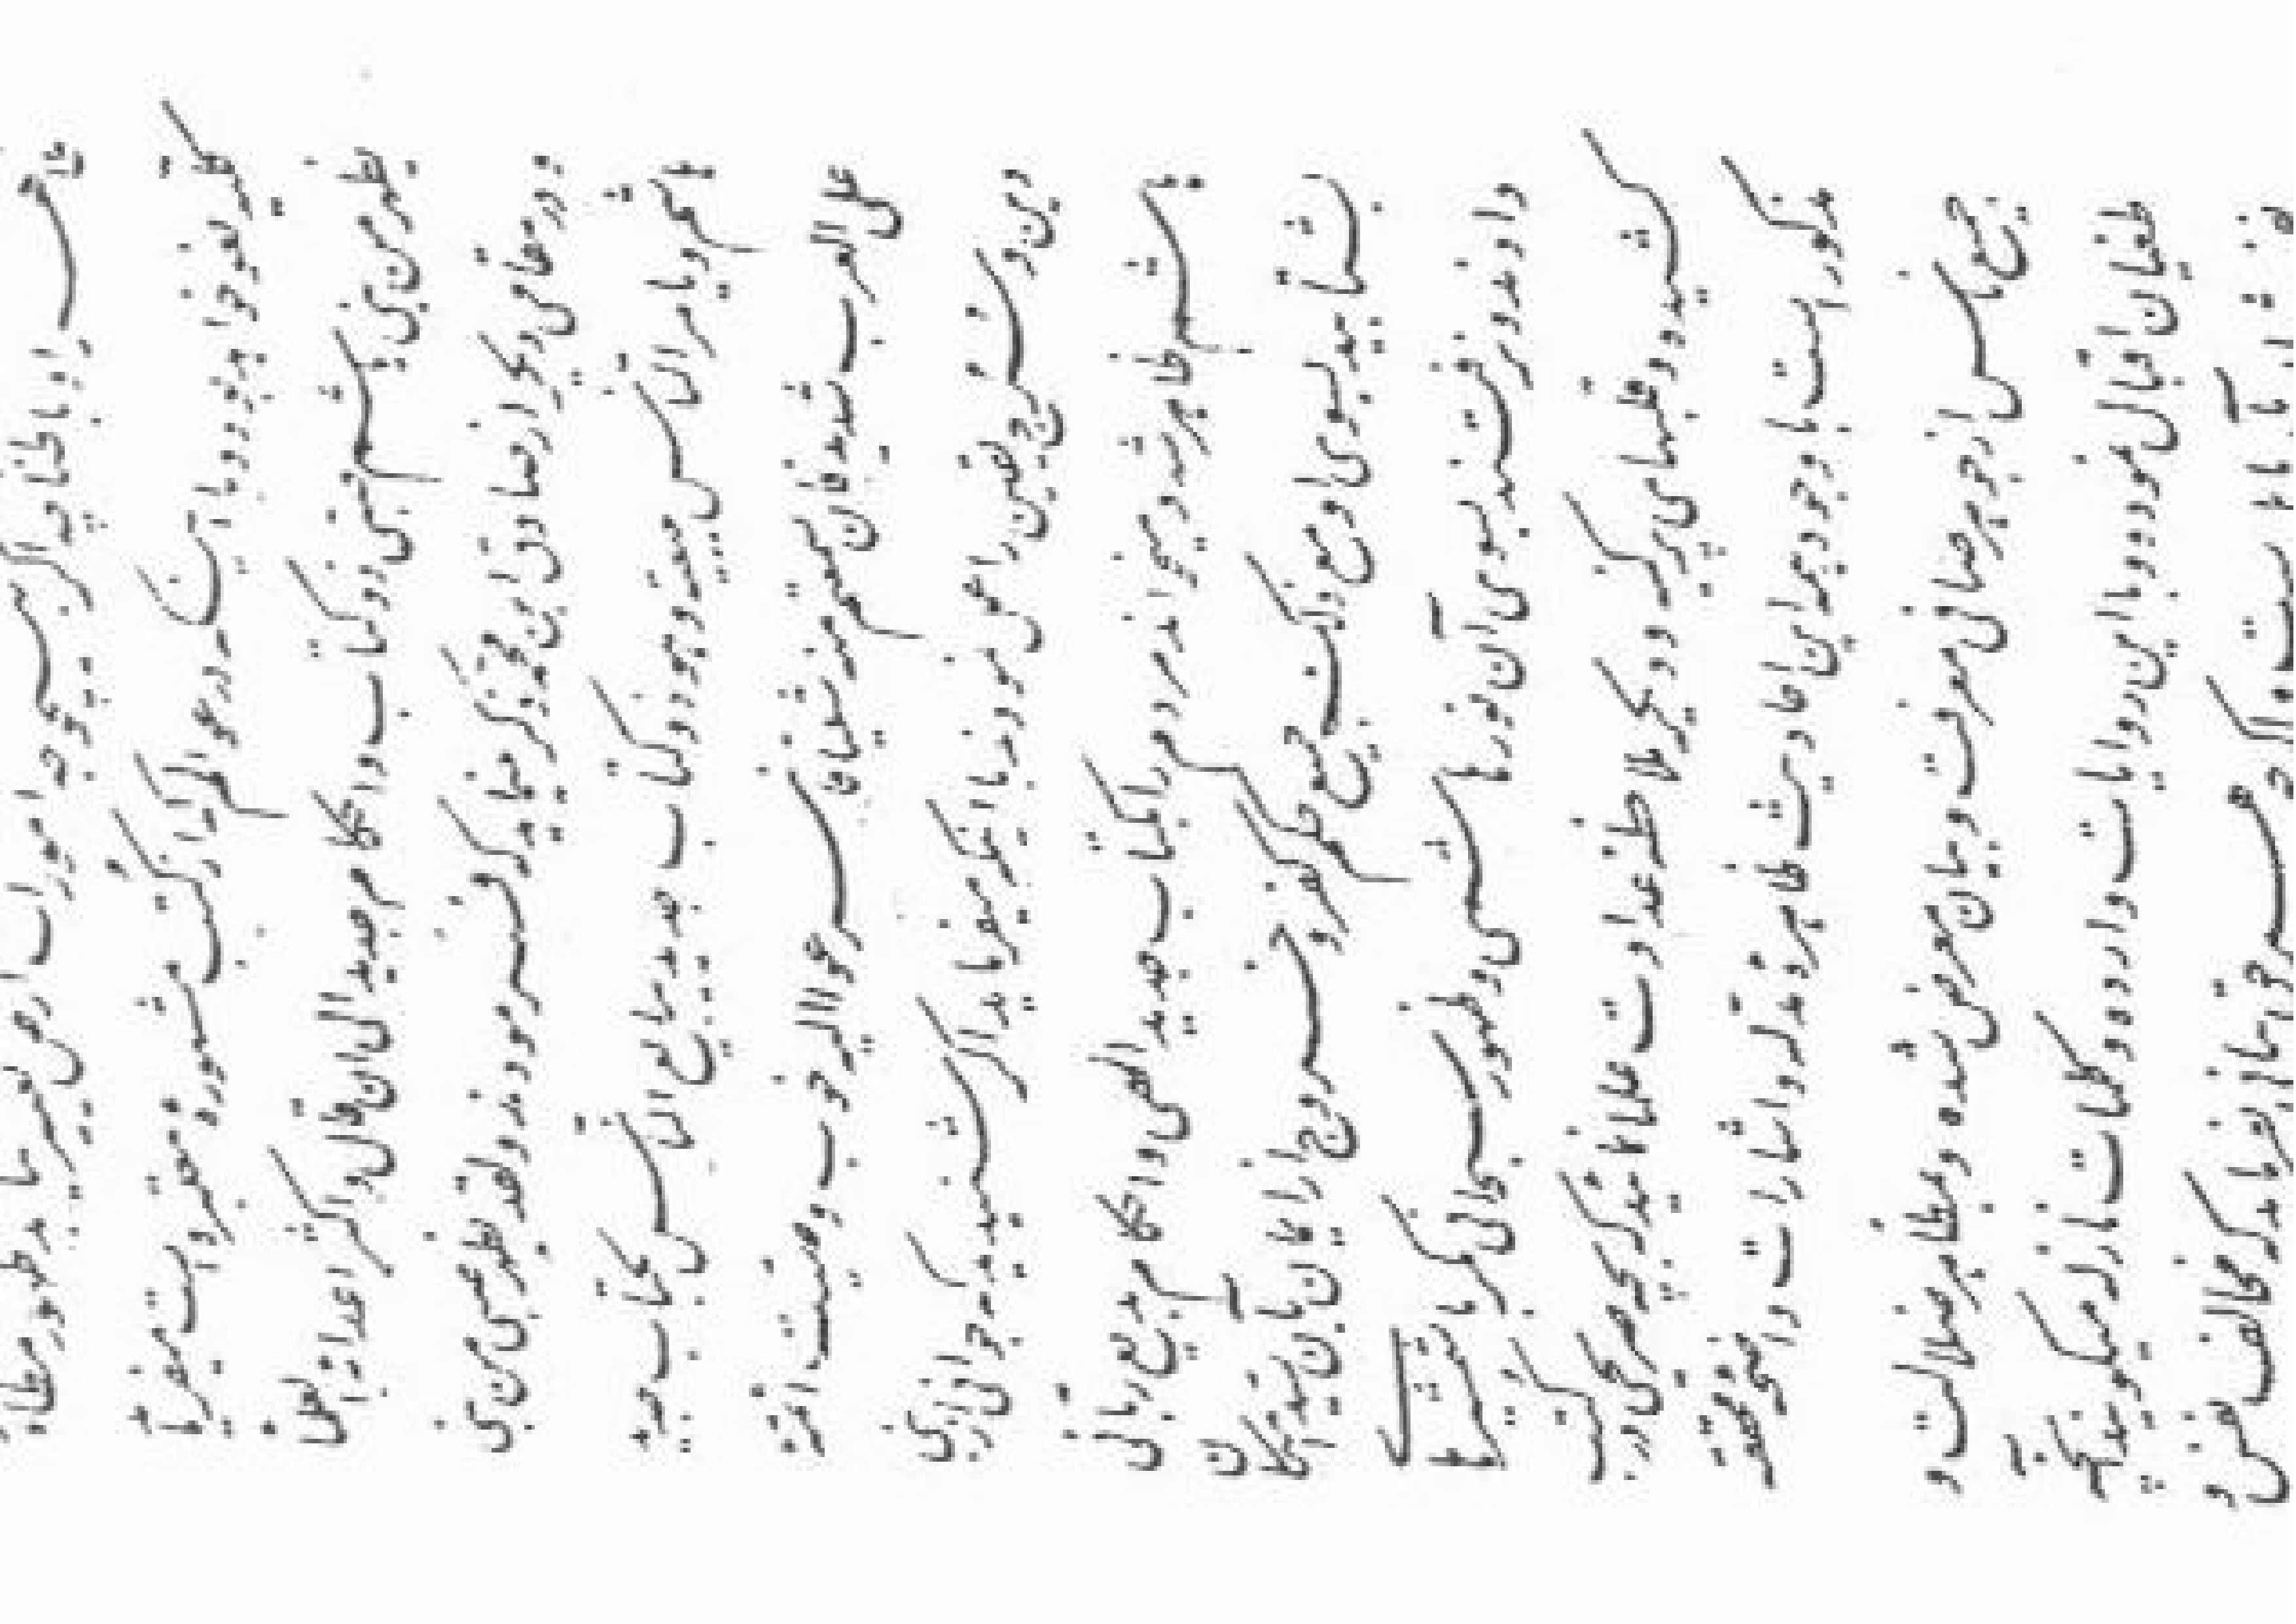 تغير خواهد بود و با آن
در عوالم که از کتب مشهوره معتبره است میفرماید
یظهر من بنی هاشم صبی ذو کتاب و احکام جدید الی ان قال و اکثر اعدائه العلما
و در مقامی دیگر از صادق ابن محمد ذکر مینماید که فرمودند و لقد یظهر صبی من بنی
هاشم و یامر الناس ببیعته و هو ذو کتاب جدید یبایع الناس بکتاب جدید
علی العرب شدید فان سمعتم منه شیئا فاسرعوا الیه خوب وصیت ائمه
دین و سرج یقین را عمل نمودند با اینکه میفرماید اگر شنیدید جوانی از بنی
هاشم ظاهر شد و میخواند مردم را بکتاب جدید الهی و احکام بدیع ربانی
بشتابید بسوی او مع ذلک جمیع حکم کفر و خروج از ایمان بآن سید امکان
دادند و نرفتند بسوی آن نور هاشمی و ظهور سبحانی مگر با شمشیرهای
کشیده و قلبهای پر کینه و دیگر ملاحظه عداوت علما نمائید که بچه صریحی در کتب
مذکور است با وجود همه این احادیث ظاهره مدله و اشارات واضحه محققه
جمیع ناس از جوهر صافی معرفت و بیان معرض شده و بمظاهر ضلالت و
طغیان اقبال نموده و با این روایات وارده و کلمات نازله میگویند آنچه
بفرماید که مخالف نفس و